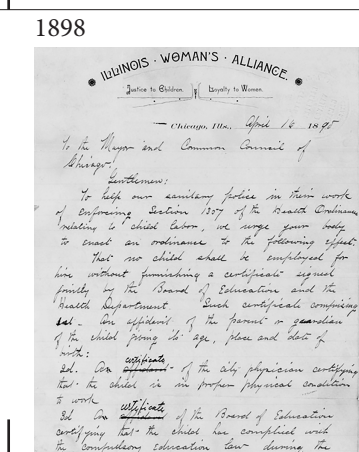 1898
ILLINOIS · WOMAN'S · ALLIANCE.
Justice to Children. Loyalty to Women.
Chicago, Ills., April 16 1895
To the Mayor and Common Council of
Chicago:
Gentlemen:
To help our sanitary police in their work
of enforcing Section 1357 of the Health Ordinance
relating to child labor, we urge your body
to enact an ordinance to the following effect.
That no child shall be employed for
hire without furnishing a certificate signed
jointly by the Board of Education and the
Health Department. Such certificate comprising
1st - An affidavit of the parent or guardian
of the child giving its age, place and date of
birth:
certificate
2d. An affidavit - of the city physician certifying
that the child is in proper physical condition
to work
certificate
3d An affidavit of the Board of Education
certifying that the child has complied with
the compulsory education law during the